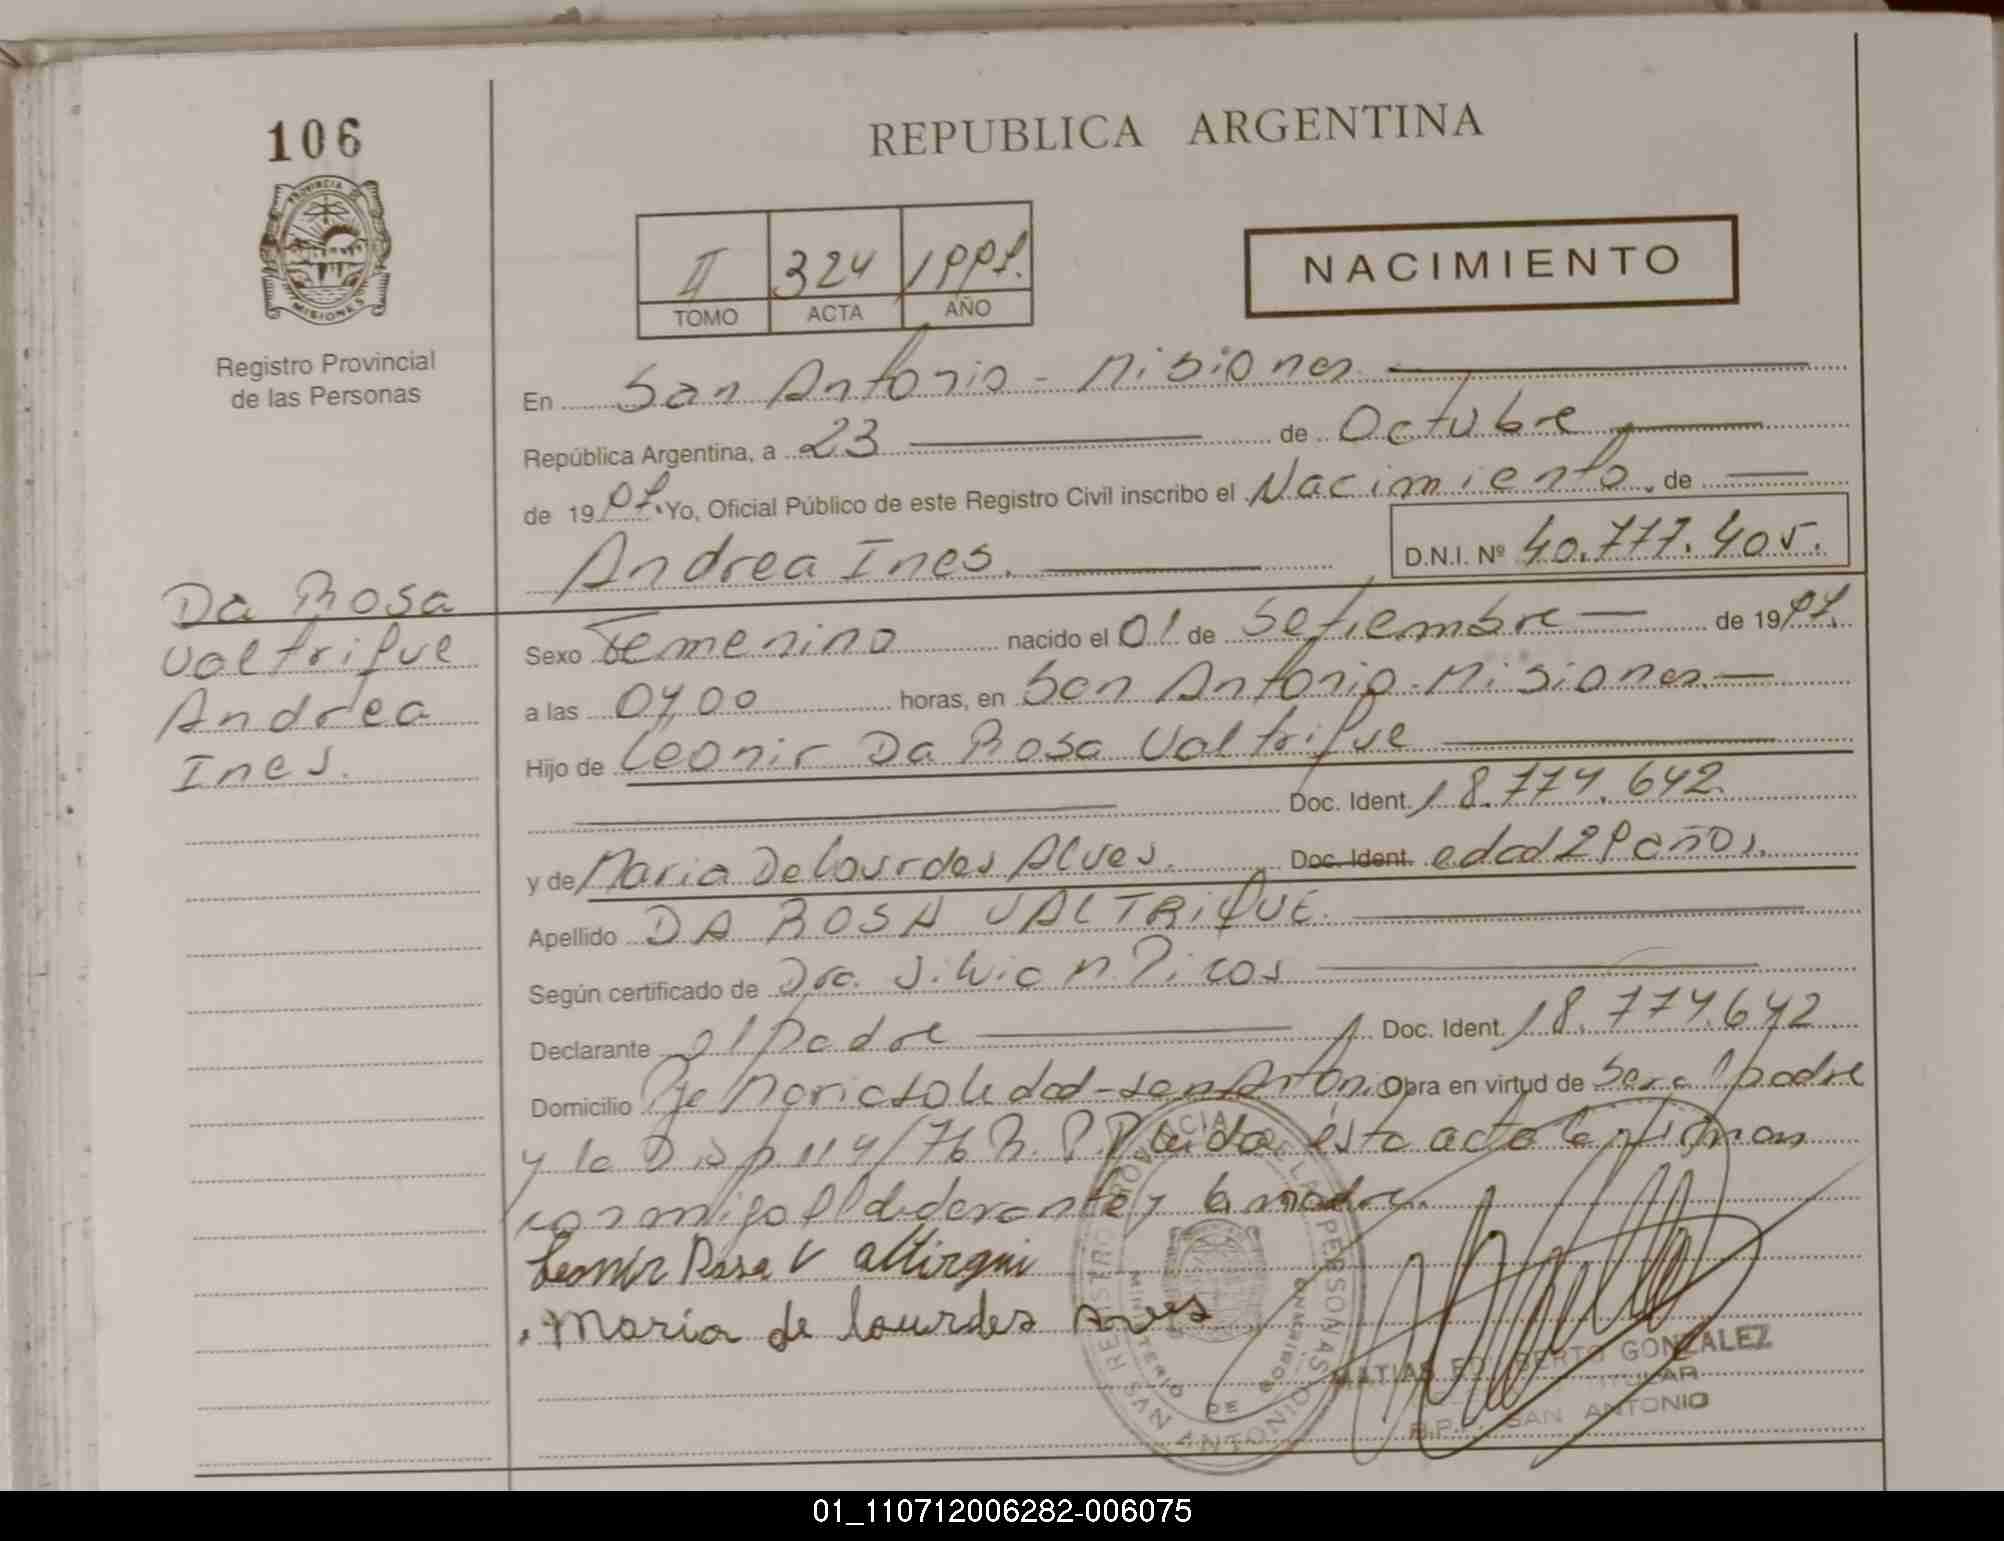 106
REPUBLICA ARGENTINA
PROVINCIA DE
MISIONES
II 324 1997.
TOMO ACTA AÑO
NACIMIENTO
Registro Provincial
de las Personas
En San Antonio - Misiones
República Argentina, a 23 de Octubre
de 1997. Yo, Oficial Público de este Registro Civil inscribo el Nacimiento de
Andrea Ines. D.N.I. Nº 40.777.405.
Da Rosa
Valtrique
Andrea
Ines.
Sexo Femenino nacido el 01 de Setiembre de 1997.
a las 0400 horas, en San Antonio - Misiones.
Hijo de Leonir Da Rosa Valtrique
Doc. Ident. 18.774.642.
y de Maria De Lourdes Alves. Doc. Ident. edad 29 años.
Apellido DA ROSA VALTRIQUE.
Según certificado de Dra. Silvia N.
Declarante el Padre Doc. Ident. 18.774.642
Domicilio Pje Maria Soledad - San Antonio Obra en virtud de Ser el padre
y la Disp. 114/76 R.P.P. Leida ésta acta la firman
conmigo el declarante y la madre.
Leonir Rosa Valtirqui
Maria de Lourdes Alves
REGISTRO PROVINCIAL DE LAS PERSONAS
MINISTERIO DE GOBIERNO
SAN ANTONIO
MATIAS GONZALEZ
TITULAR
SAN ANTONIO
01_110712006282-006075